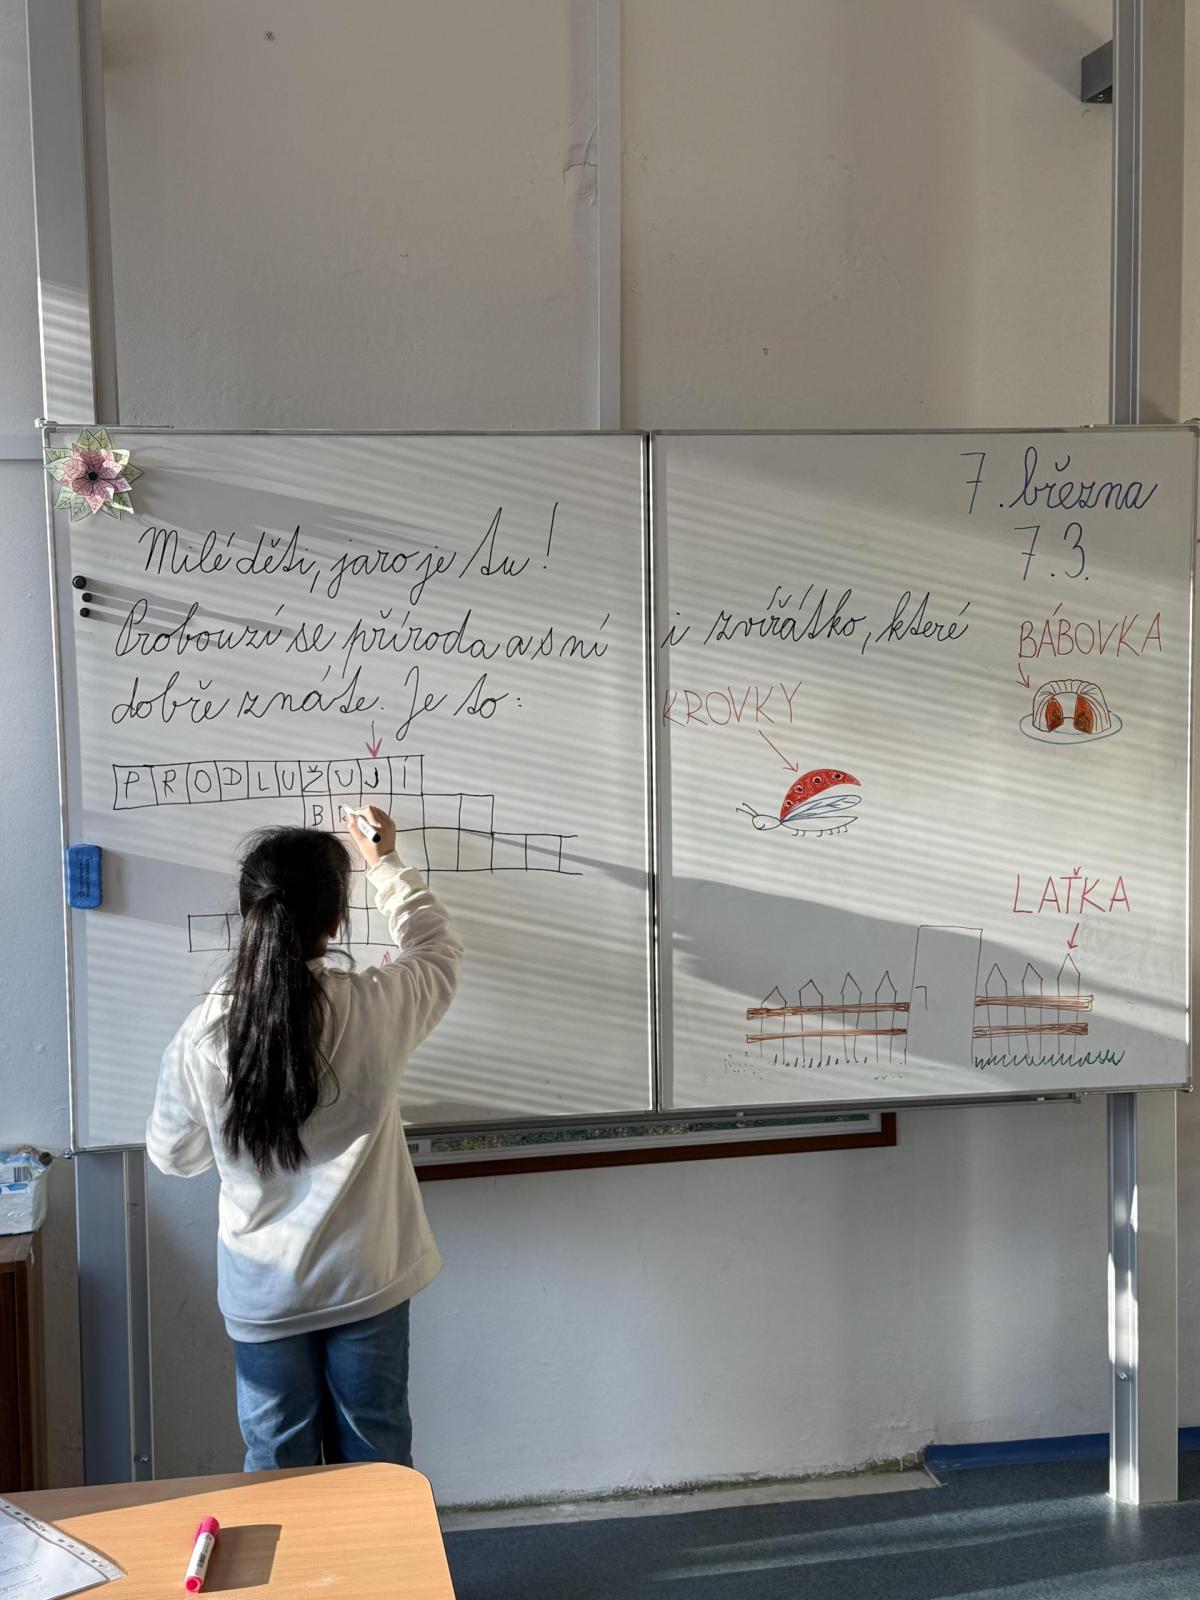 7. března
7.3.
Milé děti, jaro je tu!
Probouzí se příroda a s ní i zvířátko, které
dobře znáte. Je to:
BÁBOVKA
KROVKY
PRODLUŽUJÍ
B
LAŤKA